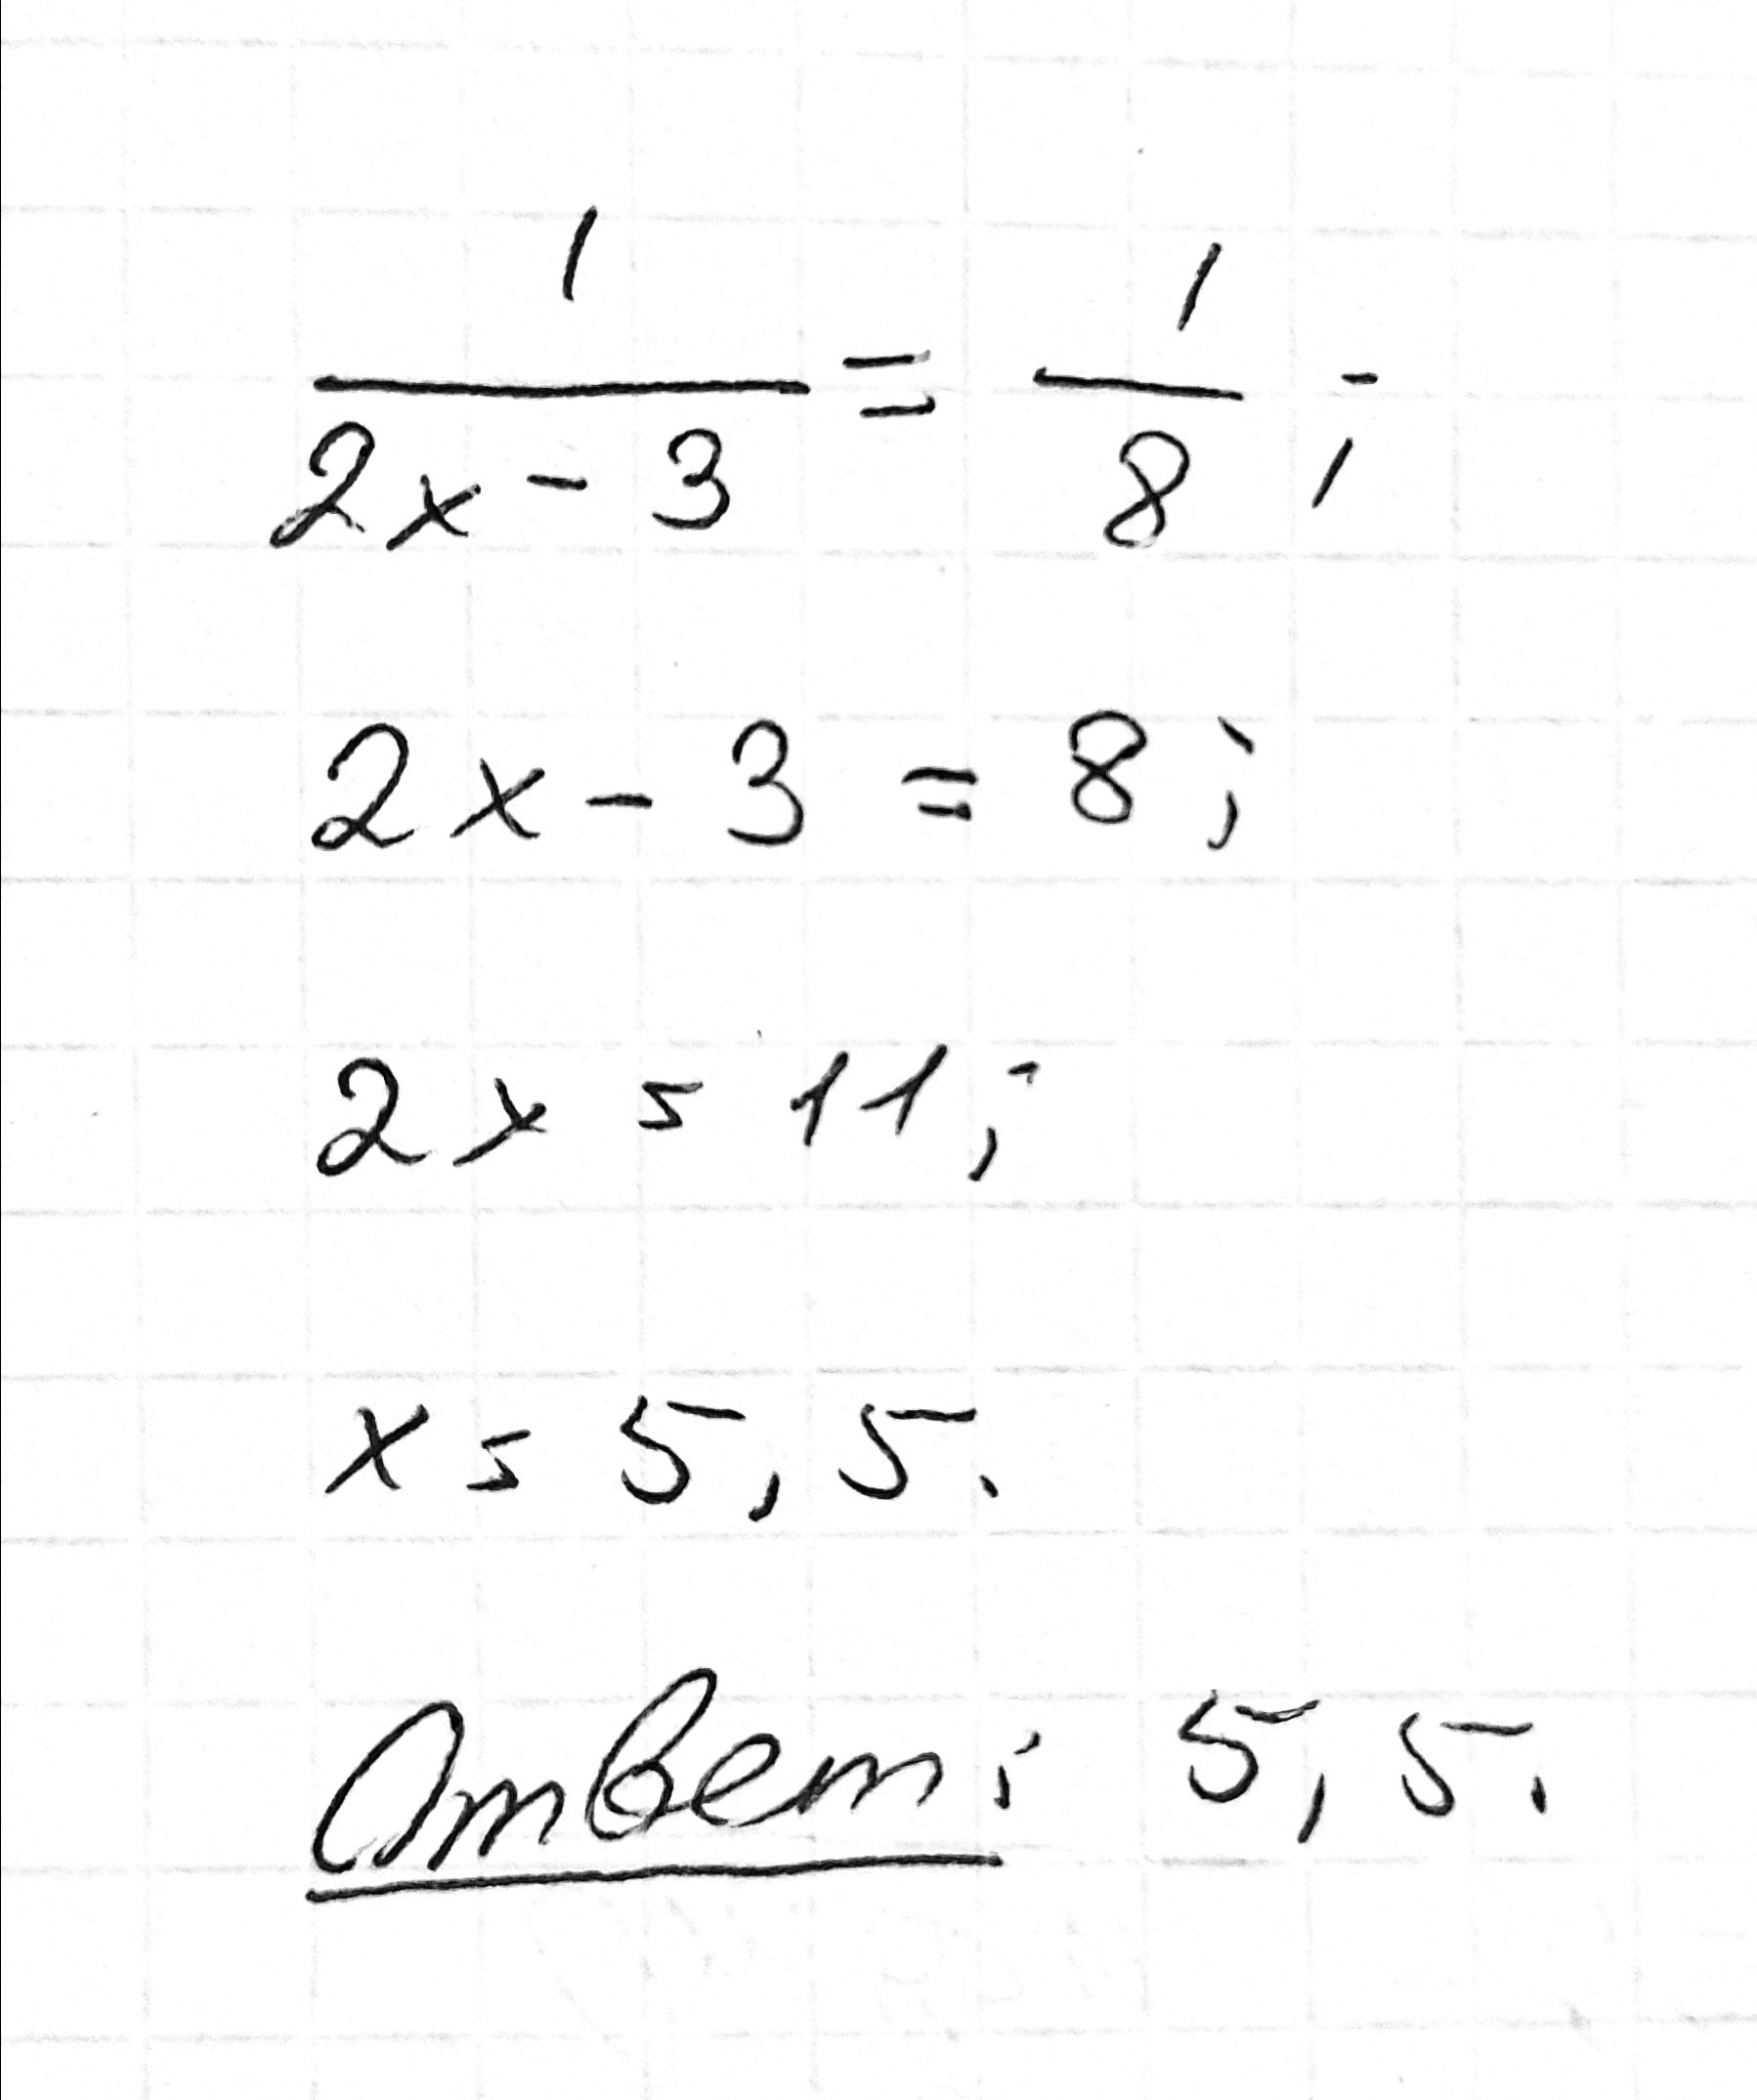 1/(2x - 3) = 1/8 ;
2x - 3 = 8 ;
2x = 11 ;
x = 5,5.
Ответ: 5,5.